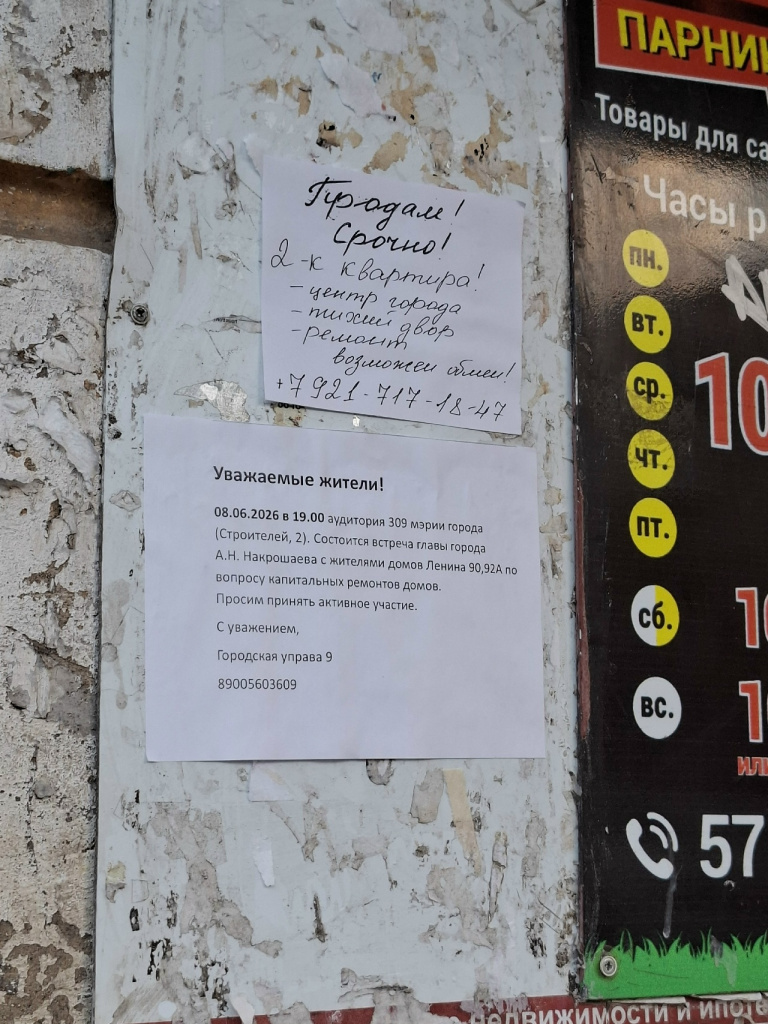 Продам!
Срочно!
2-к квартира!
- центр города
- тихий двор
- ремонт
возможен обмен!
+7 921-717-18-47
Уважаемые жители!
08.06.2026 в 19.00 аудитория 309 мэрии города
(Строителей, 2). Состоится встреча главы города
А.Н. Накрошаева с жителями домов Ленина 90,92А по
вопросу капитальных ремонтов домов.
Просим принять активное участие.
С уважением,
Городская управа 9
89005603609
ПАРНИК
Товары для са
Часы р
пн.
вт.
ср.
10
чт.
пт.
сб.
10
вс.
10
или
57
недвижимости и ипоте